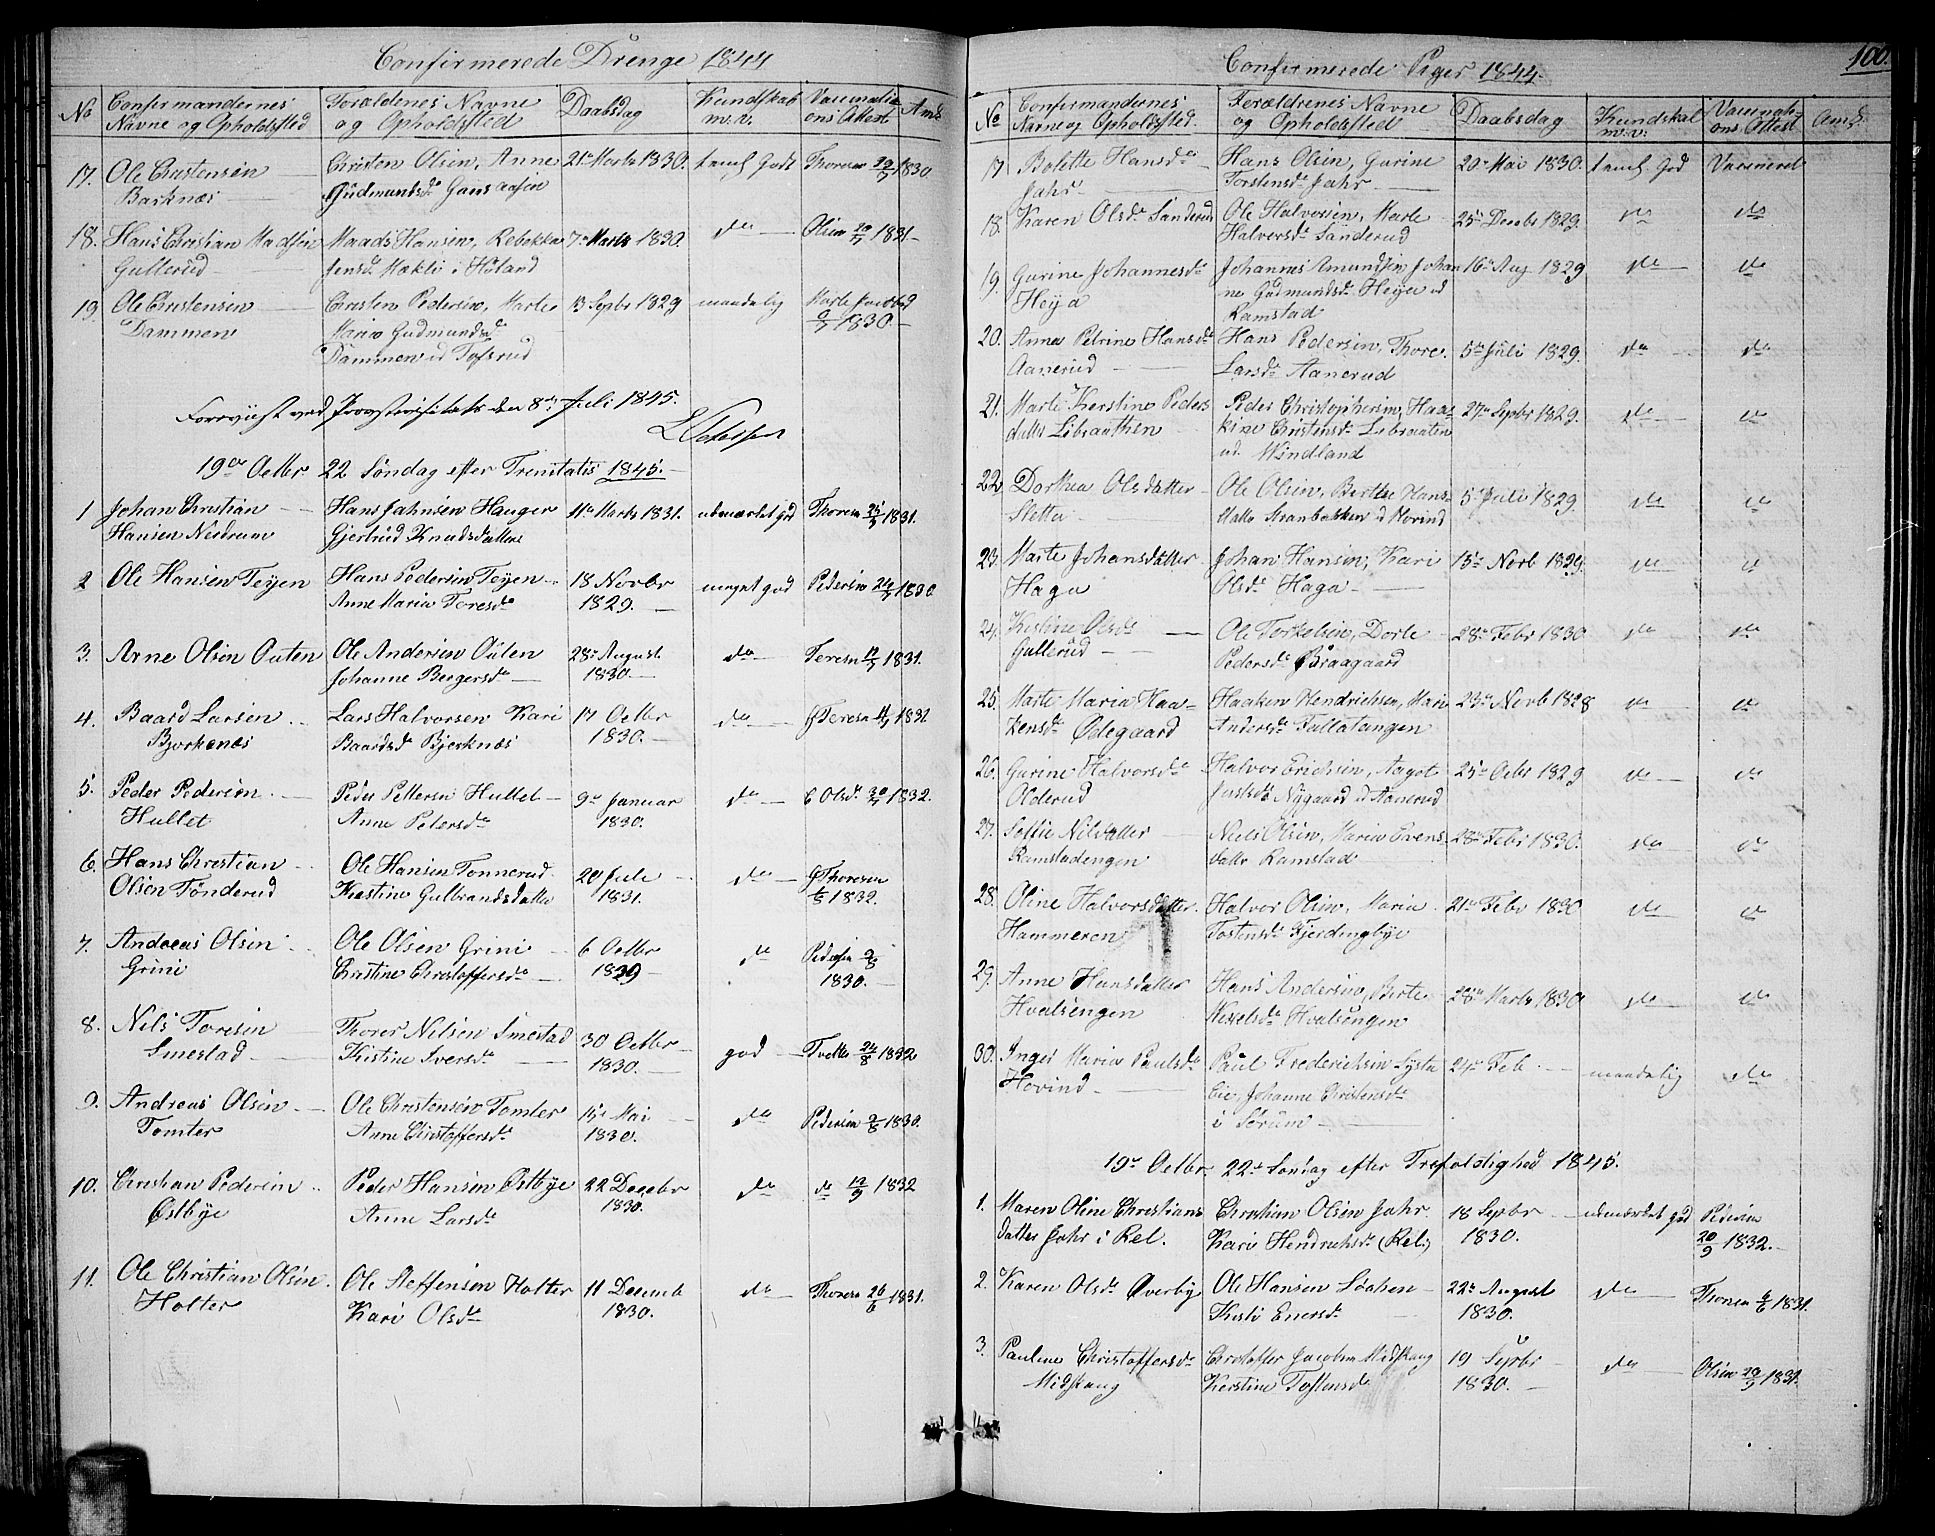 Confirmerede Drenge 1844
No
Confirmandernes
Navne og Opholdsted
Forældrenes Navne
og Opholdsted
Daabsdag
Kundskab
m.v.
Vaccinati-
ons Attest
Anm.
17. Ole Christensen
Barknæs
Christen Olsen, Anne
Gudmundsd.
21de Marts 1830.
taml. Godt
Thoresen 29/7 1830
18. Hans Christian Madsen
Gullerud
Maads Hansen, Rebekka
Jensd. Mæklie i Høland
7de Marts 1830.
do
Olsen 20/7 1831
19. Ole Christensen
Dammen
Christen Pedersen, Marte
Maria Gudmundsd.
Dammen u Tofsrud
13 Septbr 1829
maadelig
1830
Foreviist ved Provstevisitats den 8de Juli 1845.
19de Octbr 22 Søndag efter Trinitatis 1845.
1 Johan Christian
Hansen Nesdrum
Hans Jahnsen Hauger
Gjertrud Knudsdatter
11te Marts 1831.
udmærket god
Thoresen 1831.
2 Ole Hansen Teijen
Hans Pedersen Teijen
Anne Maria Toresd.
18 Novbr
1829.
meget god
Pedersen 24/7 1830
3. Arne Olsen Outen
Ole Andersen Outen
Johanne Bergersd.
28de August
1830.
do
Toresen 1831.
4. Baard Larsen
Bjorkenæs
Lars Halvorsen Kari
Baardsd. Bjerknæs
17 Octbr
1830.
do
Toresen 1831
5. Peder Pedersen
Hullet
Peder Pettersen Hullet
Anne Petersd.
9de Januar
1830.
do
C Olsd. 30/7 1832.
6. Hans Christian
Olsen Tønderud
Ole Hansen Tonnerud
Kirstine Gulbrandsdatter
20 Jule
1831.
do
G Thoresen
1832.
7. Andreas Olsen
Grini
Ole Olsen Grini
Christine Christoffersd.
6 Octbr
1829
do
Pedersen 2/8
1830.
8. Nils Toresen
Smestad
Thorer Nilsen Smestad
Kirstine Iversd.
30 Octbr
1830.
god
Tvetter 24/8 1832
9. Andreas Olsen
Tomter
Ole Christensen Tomter
Anne Christoffersd.
15de Mai
1830.
do
Pedersen 2/8 1830.
10. Christian Pedersen
Østbye
Peder Hansen Østbye
Anne Larsd.
22 Decebr
1830.
do
do 12/9 1832
11. Ole Christian Olsen
Holter
Ole Steffensen Holter
Kari Olsd.
11 Decemb
1830.
do
Thoresen 1831.
Confirmerede Piger 1844.
100.
No
Confirmandernes
Navne og Opholdsted.
Forældrenes Navne
og Opholdsted
Daabsdag
Kundskab
m.v.
Vaccinati-
ons Attest
Anm.
17 Bolette Hansd.
Jahr
Hans Olsen, Gurine
Torstensd. Jahr
20de Mai 1830.
taml. God
Vaccineret
18. Karen Olsd. Sanderud
Ole Halvorsen, Marte
Halvorsd. Sanderud
25de Decebr 1829.
do
do
19. Gurine Johannesd.
Heija
Johannes Amundsen, Johan
ne Gudmundsd. Heija u
Ramstad
16de Aug 1829
do
do
20. Anne Petrine Hansd.
Aanerud
Hans Pedersen, Thore
Larsd. Aanerud
5de Juli 1829.
do
do
21. Marte Kerstine Peders
datter Libraathen
Peder Christophersen, Haa-
kine Christensd. Libraaten
u. Mindland
27de Septbr 1829.
do
do
22 Dorthea Olsdatter
Sletta
Ole Olsen, Berthe Hans-
datter Stranbakken u Hovind
5te Juli 1829.
do
do
23. Marte Johansdatter
Haga
Johan Hansen, Kari
Olsd. Haga
15de Novb 1829.
do
do
24. Kistine Olsd.
Gullerud
Ole Torkelsen, Dorte
Pedersd. Braagaard
28de Febr 1830
do
do
25. Marte Maria Haa-
kensd. Ødegaard
Haaken Hendrichsen, Mari
Andersd. Fallatangen
23de Novb 1828
do
do
26. Gurine Halvorsd.
Olderud
Halvor Erichsen, Aagot
Justsd. Nygaard u Aanerud
25de Octbr 1829
do
do
27. Sofie Nilsdatter
Ramstadengen
Niels Olsen, Maria Evens-
datter Ramstad
28de Febr 1830.
do
do
28. Oline Halvorsdatter
Hammeren
Halvor Olsen, Maria
Tostensd. Gjerdingbye
21de Febr 1830
do
do
29. Anne Hansdatter
Hvalsengen
Hans Andersen, Berte
Nexelsd. Hvalsengen
28de Marts 1830
do
do
30. Inger Maria Paulsd.
Hovind
Paul Frederichsen Lysta
Eie, Johanne Christensd.
i Sørum
24de Feb
maadelig
do
19de Octbr. 22de Sondag efter Trefoldighed 1845.
1. Maren Oline Christians
datter Jahr i Rel.
Christian Olsen Jahr
Kari Hendrichsd. (Rel.)
18 Septbr
1830.
udmærket god
Pedersen
20/9 1832.
2. Karen Olsd. Øverby
Ole Hansen Løahen
Kisti Enersd.
22de August
1830.
do
Thoresen 1831.
3. Pauline Christoffersd.
Midskaug
Christoffer Jacobsen Midskaug
Kerstine Tostensd.
19 Septbr
1830.
do
Olsen 20/9 1831.